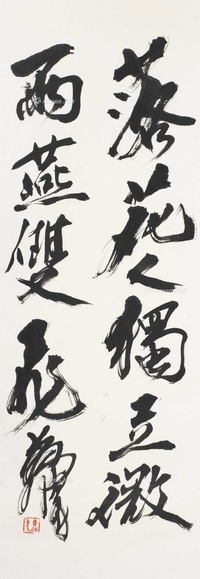 落花人獨立微
雨燕雙飛